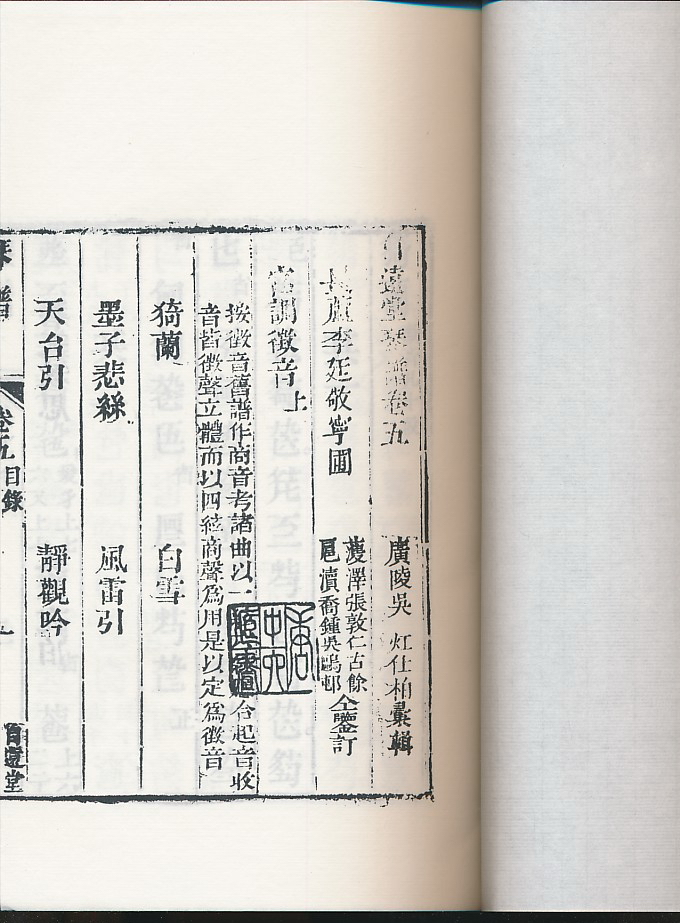 自遠堂琴譜卷五
廣陵吳 灴仕柏彙輯
長蘆李廷敬寧圃
濩澤張敦仁古餘
邑瀆喬鍾吳鷗邨
仝鑒訂
宮調徵音上
按徵音舊譜作商音考諸曲以一 合起音收
音皆徵聲立體而以四絃商聲爲用是以定爲徵音
猗蘭 白雪
墨子悲絲 風雷引
天台引 靜觀吟
琴譜
卷五目錄
一
自遠堂